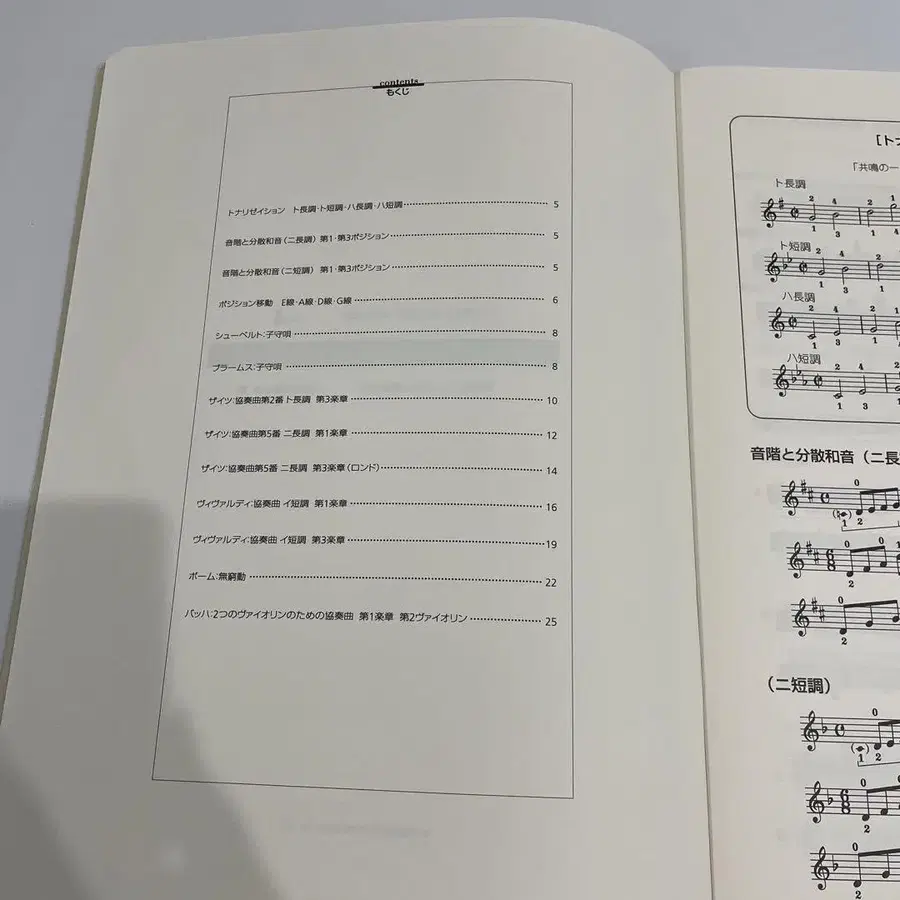 contents
もくじ
トナリゼイション ト長調・ト短調・ハ長調・ハ短調 5
音階と分散和音(ニ長調) 第1・第3ポジション 5
音階と分散和音(ニ短調) 第1・第3ポジション 5
ポジション移動 E線・A線・D線・G線 6
シューベルト:子守唄 8
ブラームス:子守唄 8
ザイツ:協奏曲第2番 ト長調 第3楽章 10
ザイツ:協奏曲第5番 ニ長調 第1楽章 12
ザイツ:協奏曲第5番 ニ長調 第3楽章(ロンド) 14
ヴィヴァルディ:協奏曲 イ短調 第1楽章 16
ヴィヴァルディ:協奏曲 イ短調 第3楽章 19
ボーム:無窮動 22
バッハ:2つのヴァイオリンのための協奏曲 第1楽章 第2ヴァイオリン 25
[トナ
「共鳴の一
ト長調
ト短調
ハ長調
ハ短調
音階と分散和音(ニ長
(ニ短調)